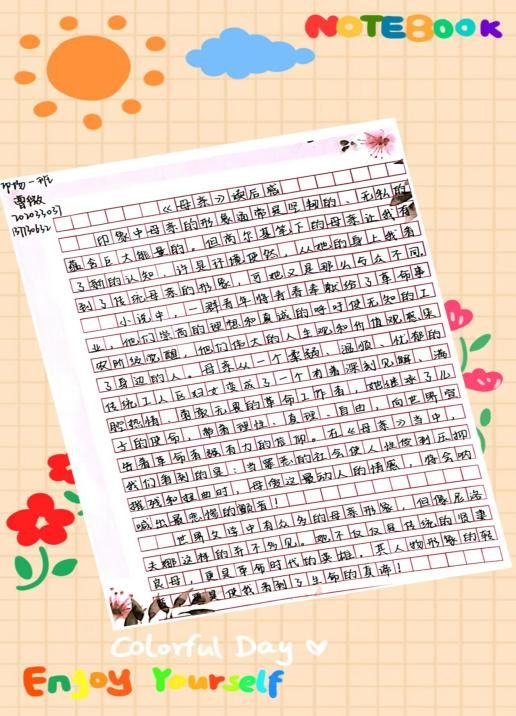 NOTEBOOK
曹微
《母亲》读后感
印象中母亲的形象通常是坚韧的、无私的
蕴含巨大能量的。但高尔基笔下的母亲让我有
了新的认知,许是环境使然,从她的身上我看
到了传统母亲的形象,可她又是那么与众不同。
小说中,一群青年将青春奉献给了革命事
业,他们崇高的理想和真诚的呼吁使无知的工
农阶级觉醒,他们伟大的人生观和价值观感染
了身边的人。母亲从一个柔弱、温顺、忧郁的
传统工人区妇女变成了一个有着深刻见解、满
腔热情、勇敢无畏的革命工作者,她继承了儿
子的使命,带着理性、真理、自由,向世界宣
告着革命者强有力的信仰。在《母亲》当中,
我们看到的是:当罪恶的社会使人性被剥压抑
摧残和扭曲时,母爱这最动人的情感,将会呐
喊出最悲愤的颤音!
世界文学中有众多的母亲形象,但像尼洛
夫娜这样的并不多见。她不仅仅是传统的贤妻
良母,更是革命时代的英雄。其人物形象的转
是使我看到了生命的真谛!
Colorful Day
Enjoy Yourself